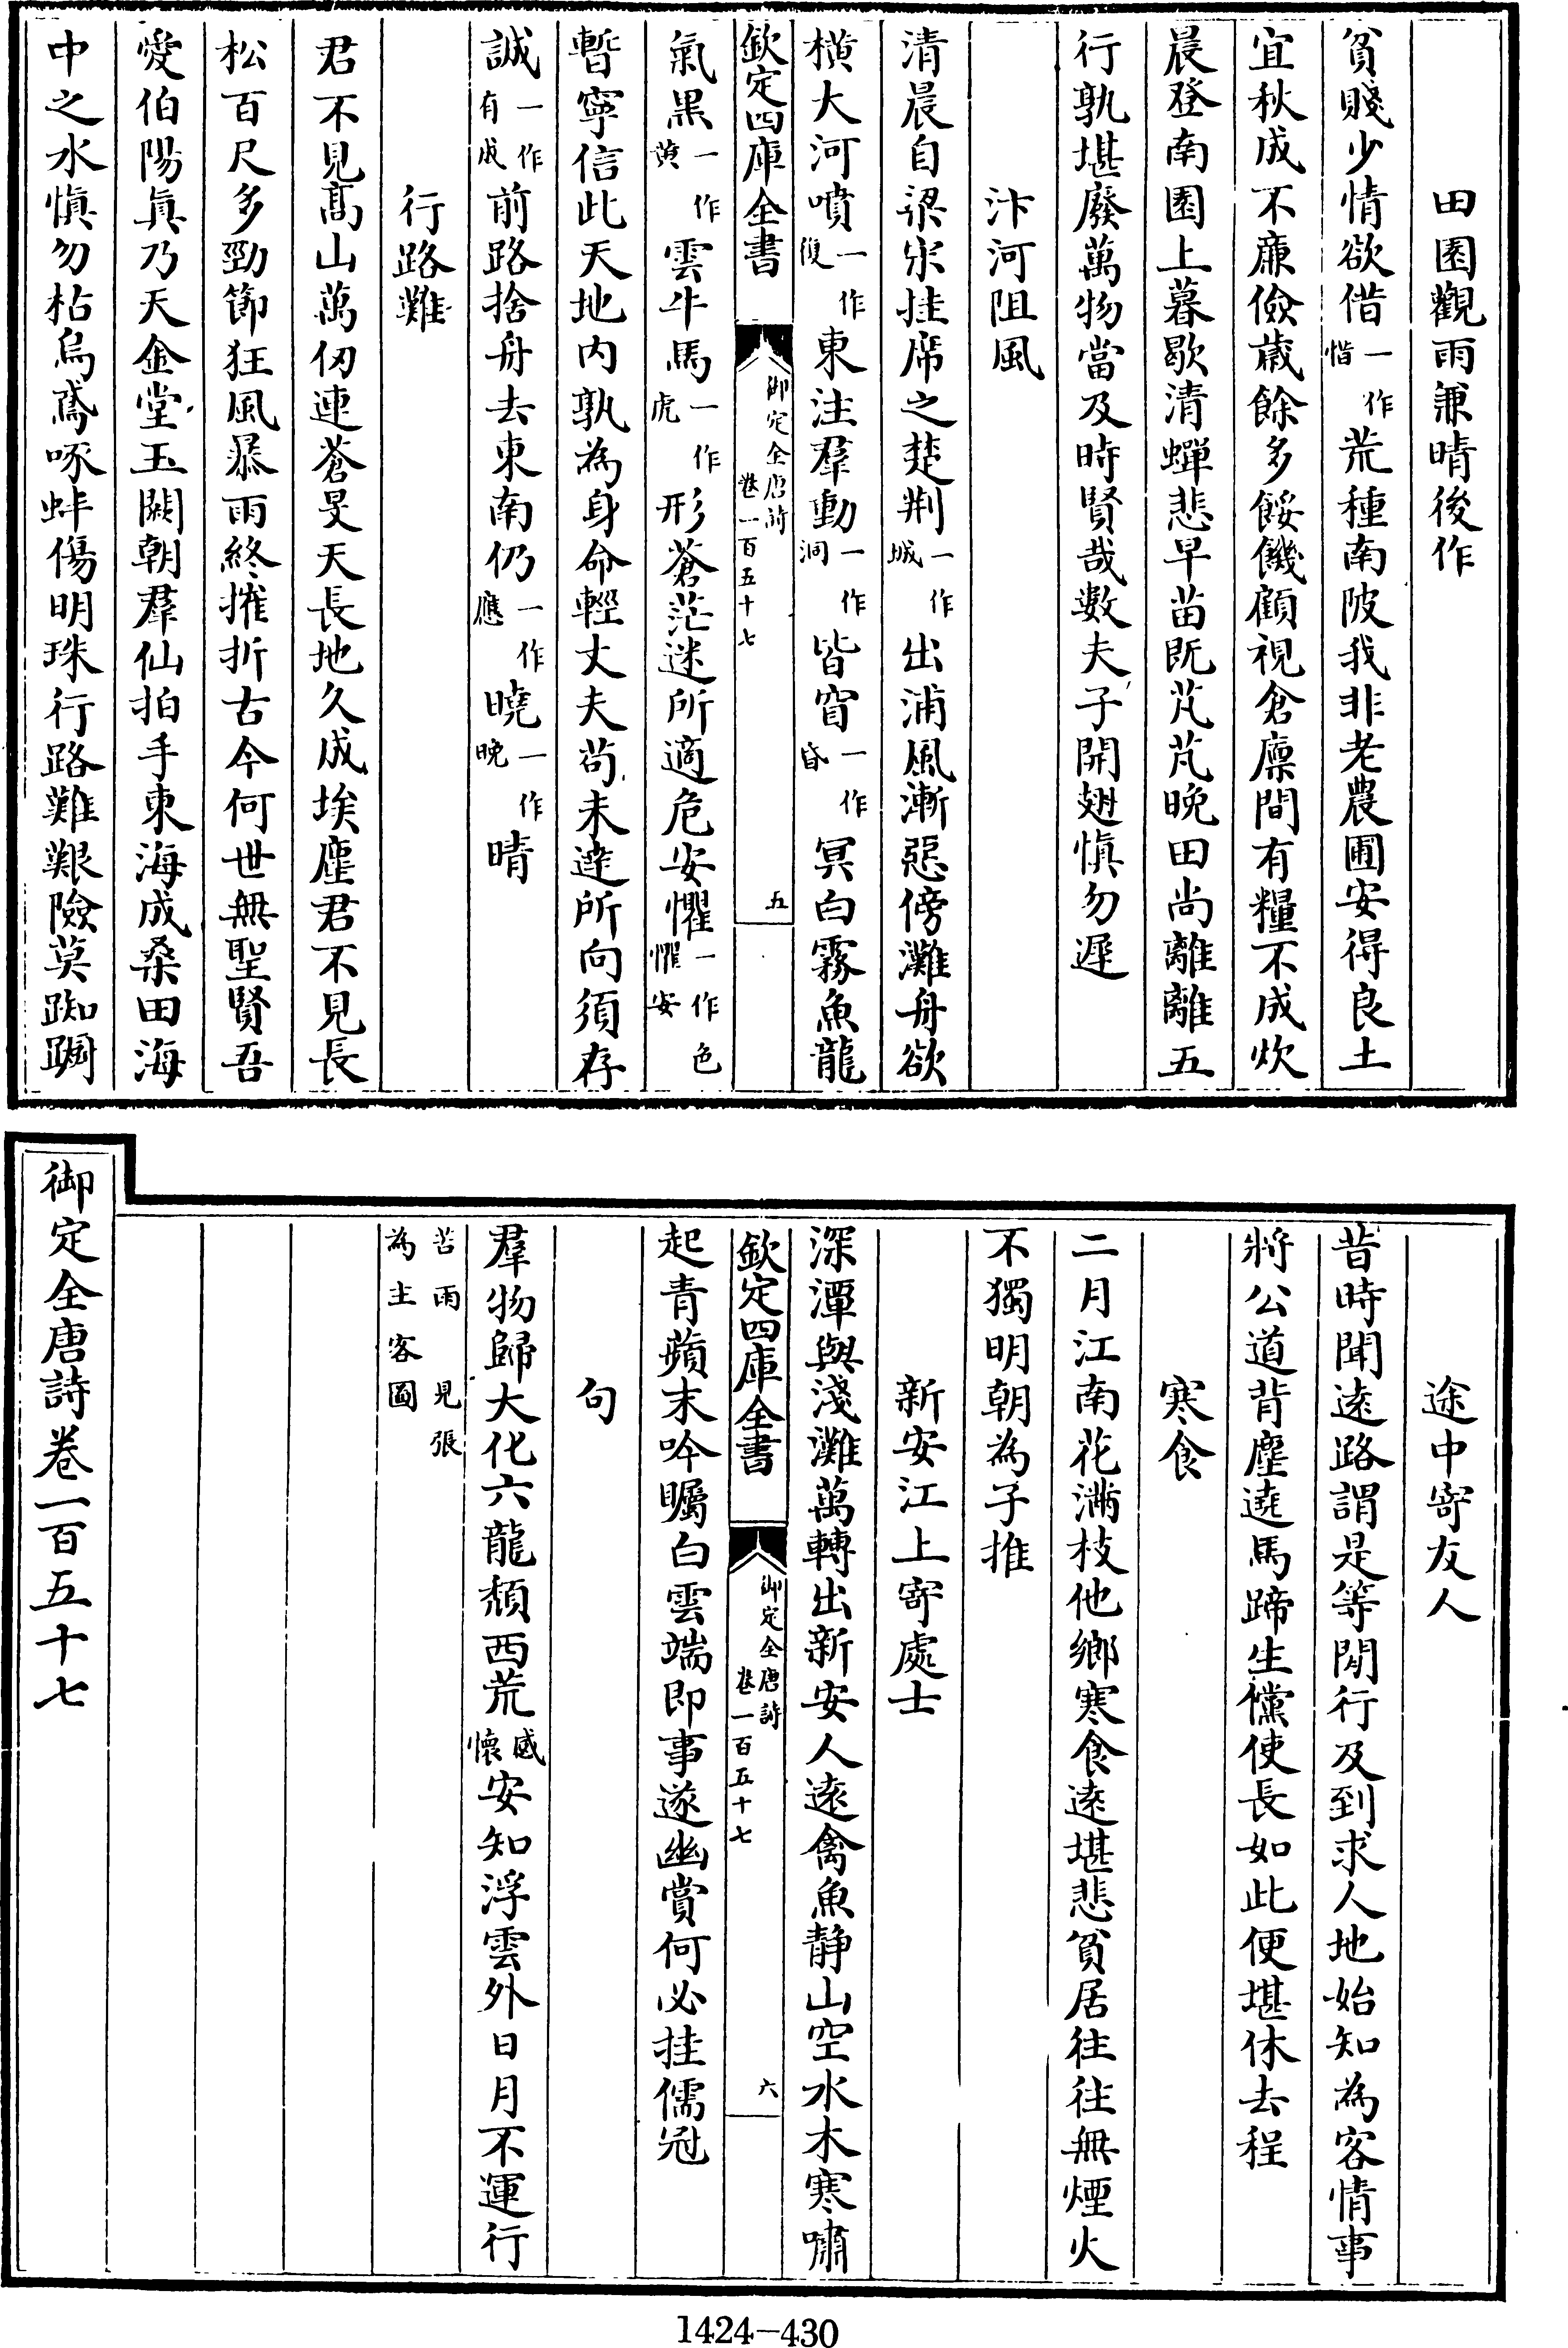 田園觀雨兼晴後作
貧賤少情欲借一作惜荒種南陂我非老農圃安得良土
宜秋成不廉儉歲餘多餒饑顧視倉廩間有糧不成炊
晨登南園上暮歇清蟬悲早苗既芃芃晚田尚離離五
行孰堪廢萬物當及時賢哉數夫子開翅慎勿遲
汴河阻風
清晨自梁宋挂席之楚荆一作城出浦風漸惡傍灘舟欲
橫大河噴一作復東注羣動一作洞皆窅一作昏冥白霧魚龍
欽定四庫全書
御定全唐詩
卷一百五十七
五
氣黑一作黃雲牛馬一作虎形蒼茫迷所適危安懼一作色懼安
暫寧信此天地内孰為身命輕丈夫苟未達所向須存
誠一作有成前路捨舟去東南仍一作應曉一作晚晴
行路難
君不見髙山萬仞連蒼旻天長地久成埃塵君不見長
松百尺多勁節狂風暴雨終摧折古今何世無聖賢吾
愛伯陽眞乃天金堂玉闕朝羣仙拍手東海成桑田海
中之水慎勿枯烏鳶啄蚌傷明珠行路難艱險莫踟躕
途中寄友人
昔時聞逺路謂是等閒行及到求人地始知為客情事
將公道背塵遶馬蹄生儻使長如此便堪休去程
寒食
二月江南花滿枝他鄉寒食逺堪悲貧居往往無煙火
不獨明朝為子推
新安江上寄處士
深潭與淺灘萬轉出新安人逺禽魚静山空水木寒嘯
欽定四庫全書
御定全唐詩
卷一百五十七
六
起青蘋末吟矚白雲端即事遂幽賞何必挂儒冠
句
羣物歸大化六龍頽西荒感懷安知浮雲外日月不運行
苦雨 見張為主客圖
御定全唐詩卷一百五十七
1424-430